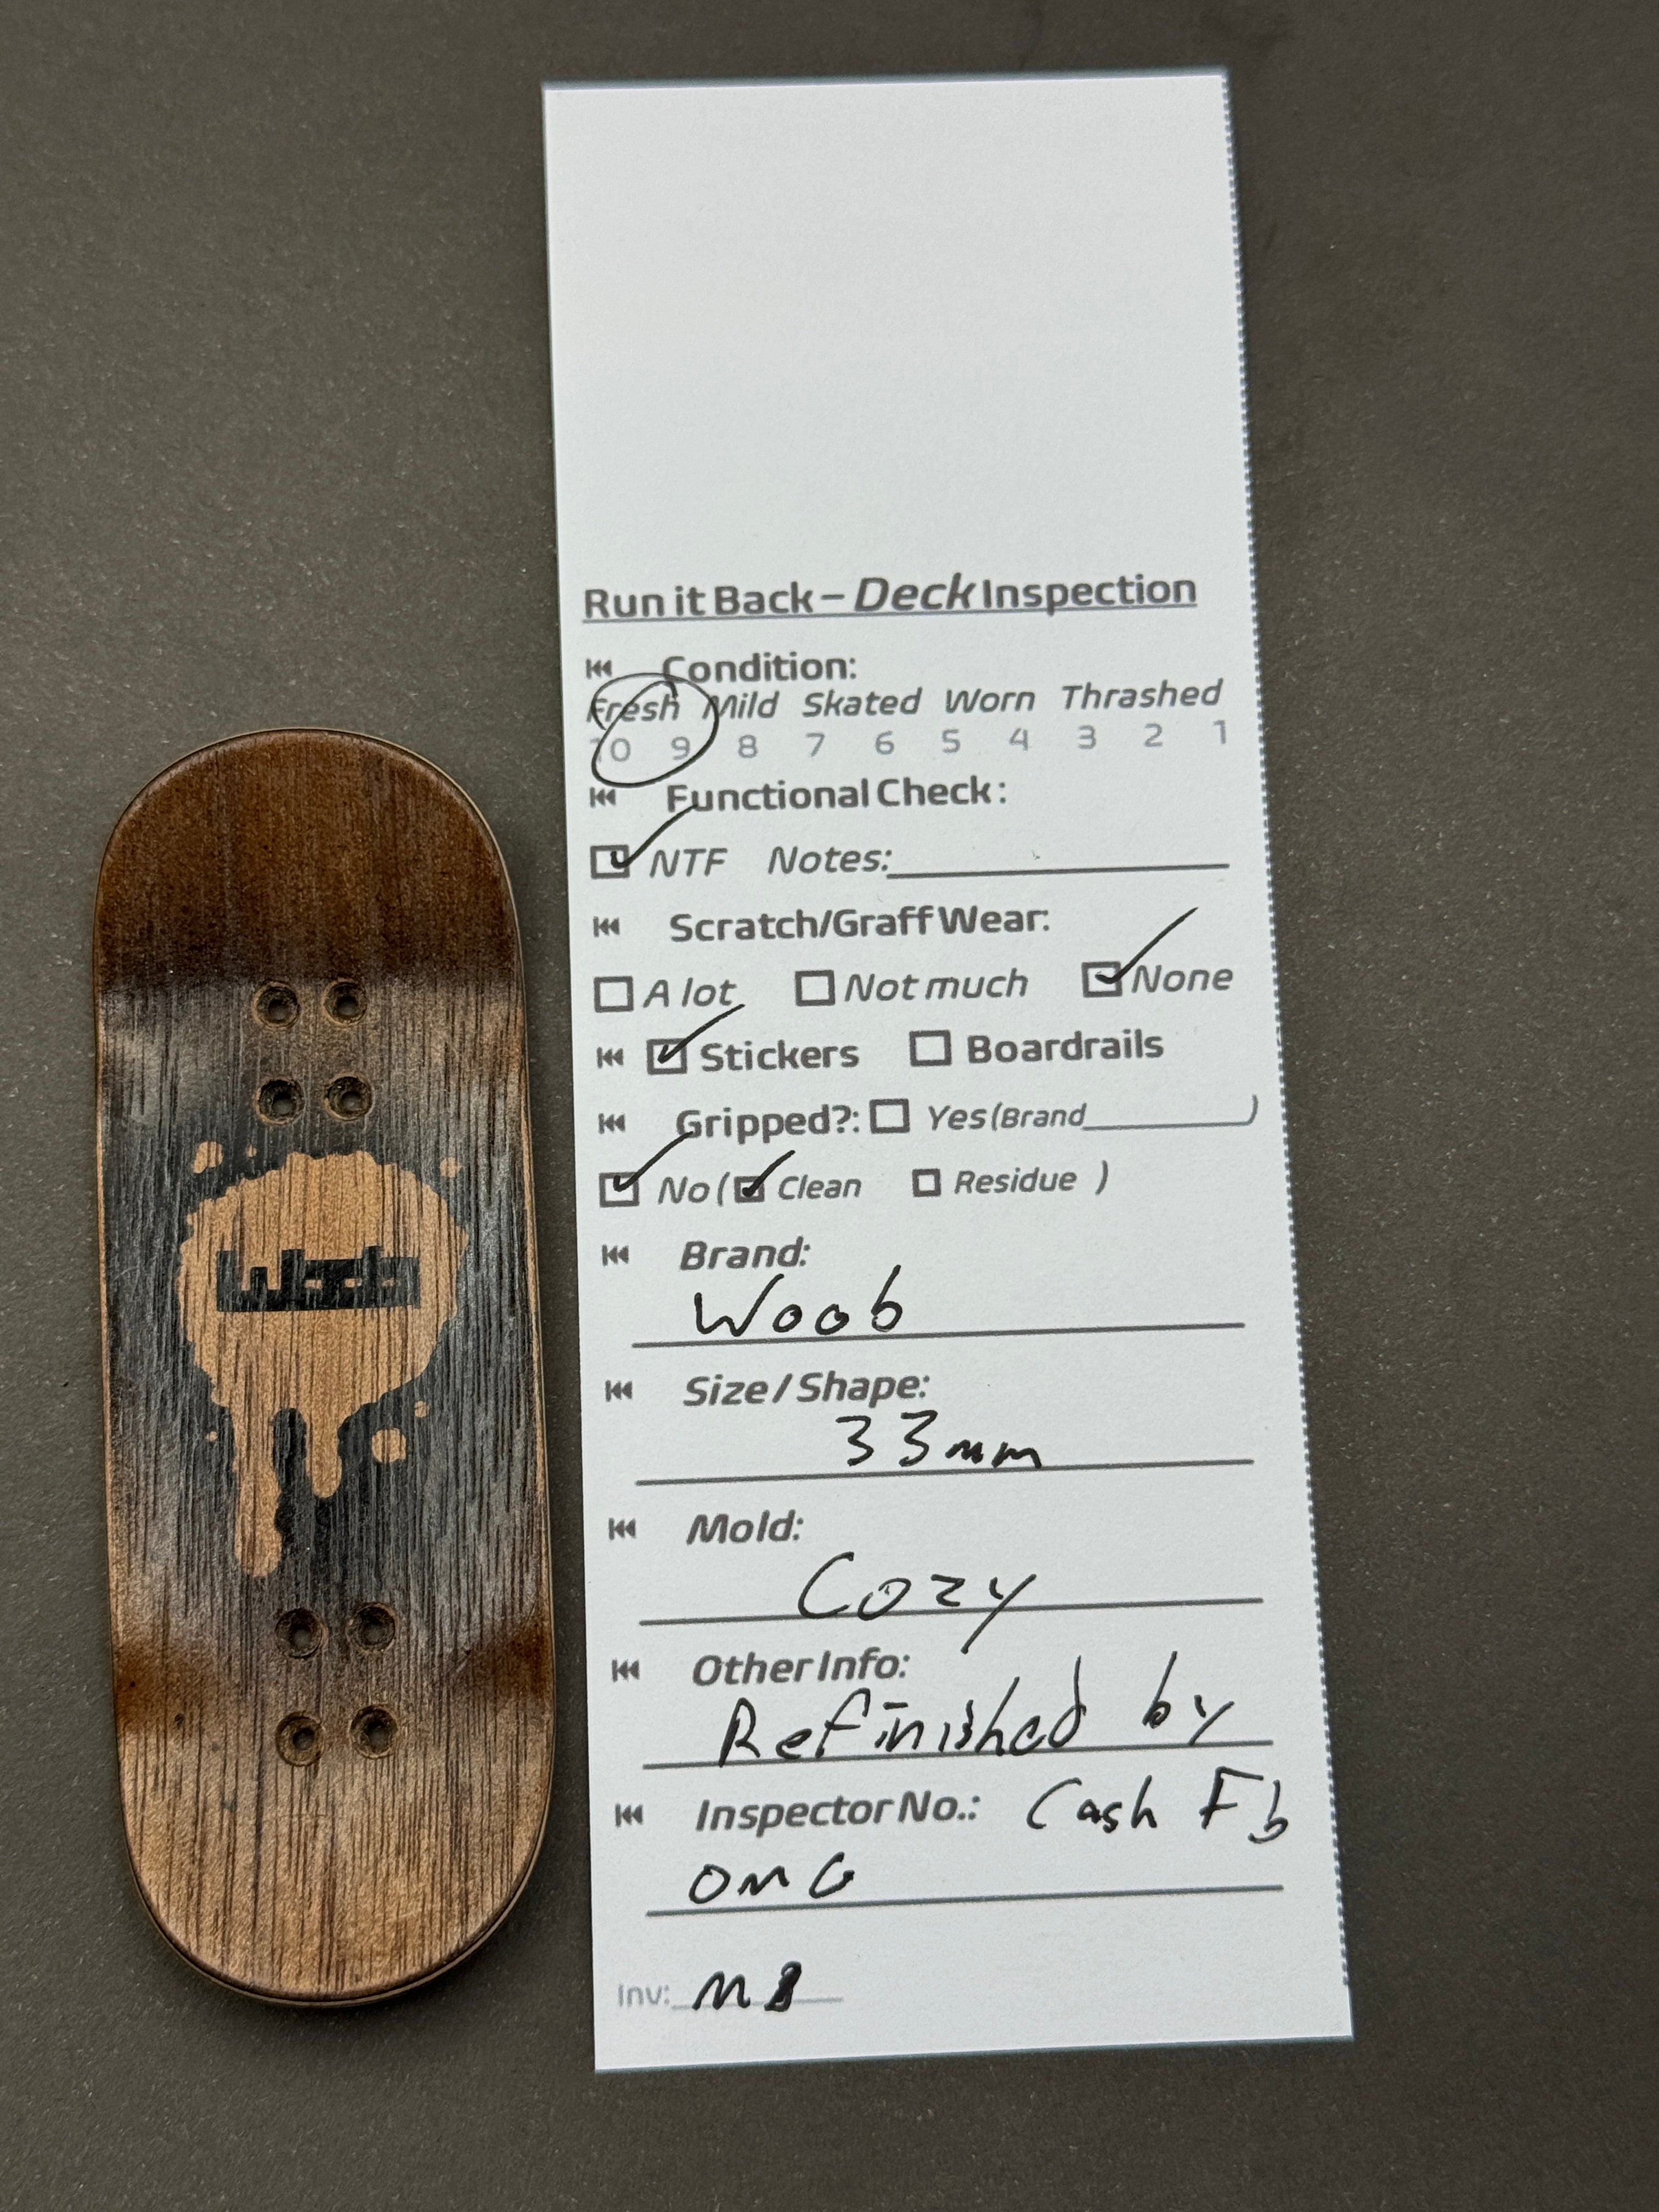 Run it Back – Deck Inspection
Condition:
Fresh Mild Skated Worn Thrashed
10 9 8 7 6 5 4 3 2 1
Functional Check:
NTF Notes:
Scratch/Graff Wear:
A lot Not much None
Stickers Boardrails
Gripped?: Yes (Brand )
No ( Clean Residue )
Brand:
Woob
Size / Shape:
33mm
Mold:
Cozy
Other Info:
Refinished by
Inspector No.: Cash Fb
OMG
Inv: M8
Woob